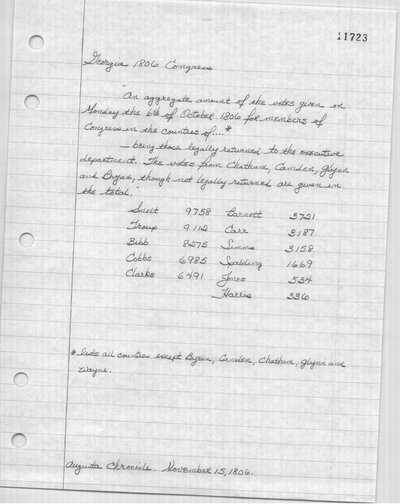 11723
Georgia 1806 Congress
"An aggregate amount of the votes given on
Monday the 6th of October 1806 for members of
Congress in the counties of....*
— being those legally returned to the executive
department. The votes from Chatham, Camden, Glynn
and Bryan, though not legally returned are given in
the total."
Smelt 9758 Barnett 3721
Troup 9112 Carr 3187
Bibb 8275 Simms 3158
Cobbs 6985 Spalding 1669
Clarke 6491 Jones 534
Harris 336
* lists all counties except Bryan, Camden, Chatham, Glynn and
Wayne.
Augusta Chronicle. November 15, 1806.